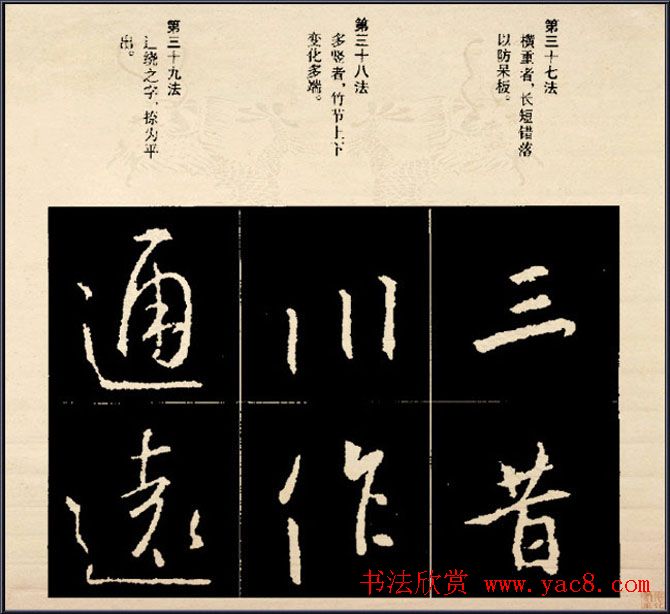 第三十七法
横重者，长短错落
以防呆板。
第三十八法
多竖者，竹节上下
变化多端。
第三十九法
辶绕之字，捺为平
出。
三昔
川作
通遠
书法欣赏 www.yac8.com